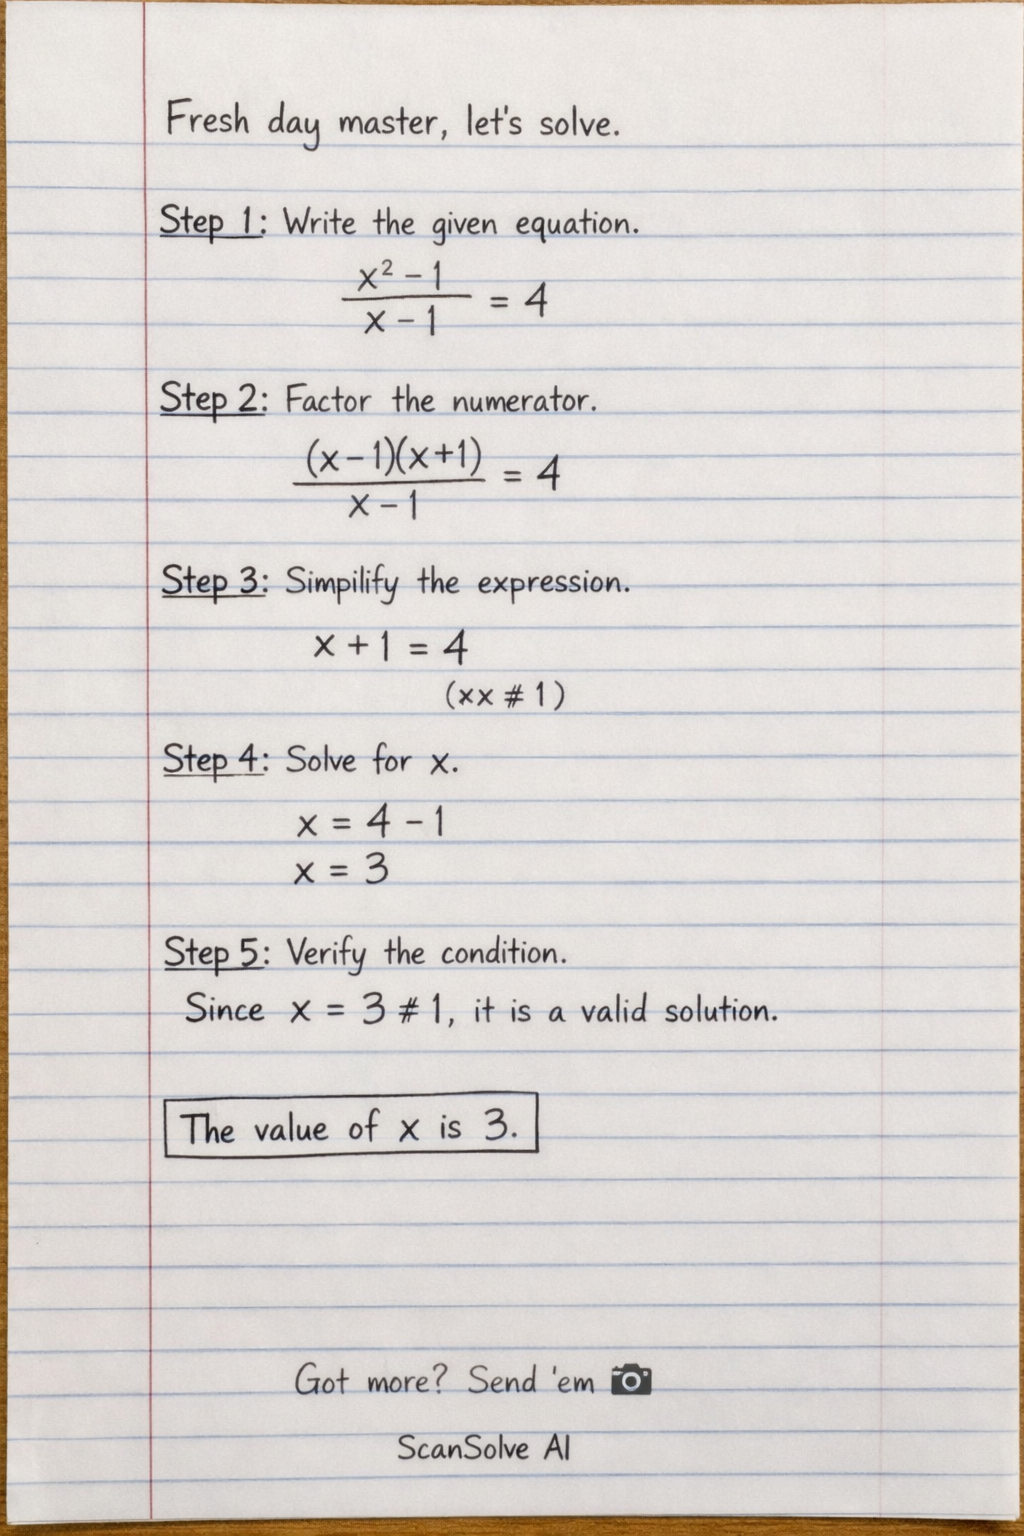 Fresh day master, let's solve.
Step 1: Write the given equation.
x² - 1
= 4
x - 1
Step 2: Factor the numerator.
(x - 1)(x+1)
= 4
x - 1
Step 3: Simpilify the expression.
x + 1 = 4
(xx # 1)
Step 4: Solve for x.
x = 4 - 1
x = 3
Step 5: Verify the condition.
Since x = 3 # 1, it is a valid solution.
The value of x is 3.
Got more? Send 'em 📷
ScanSolve AI